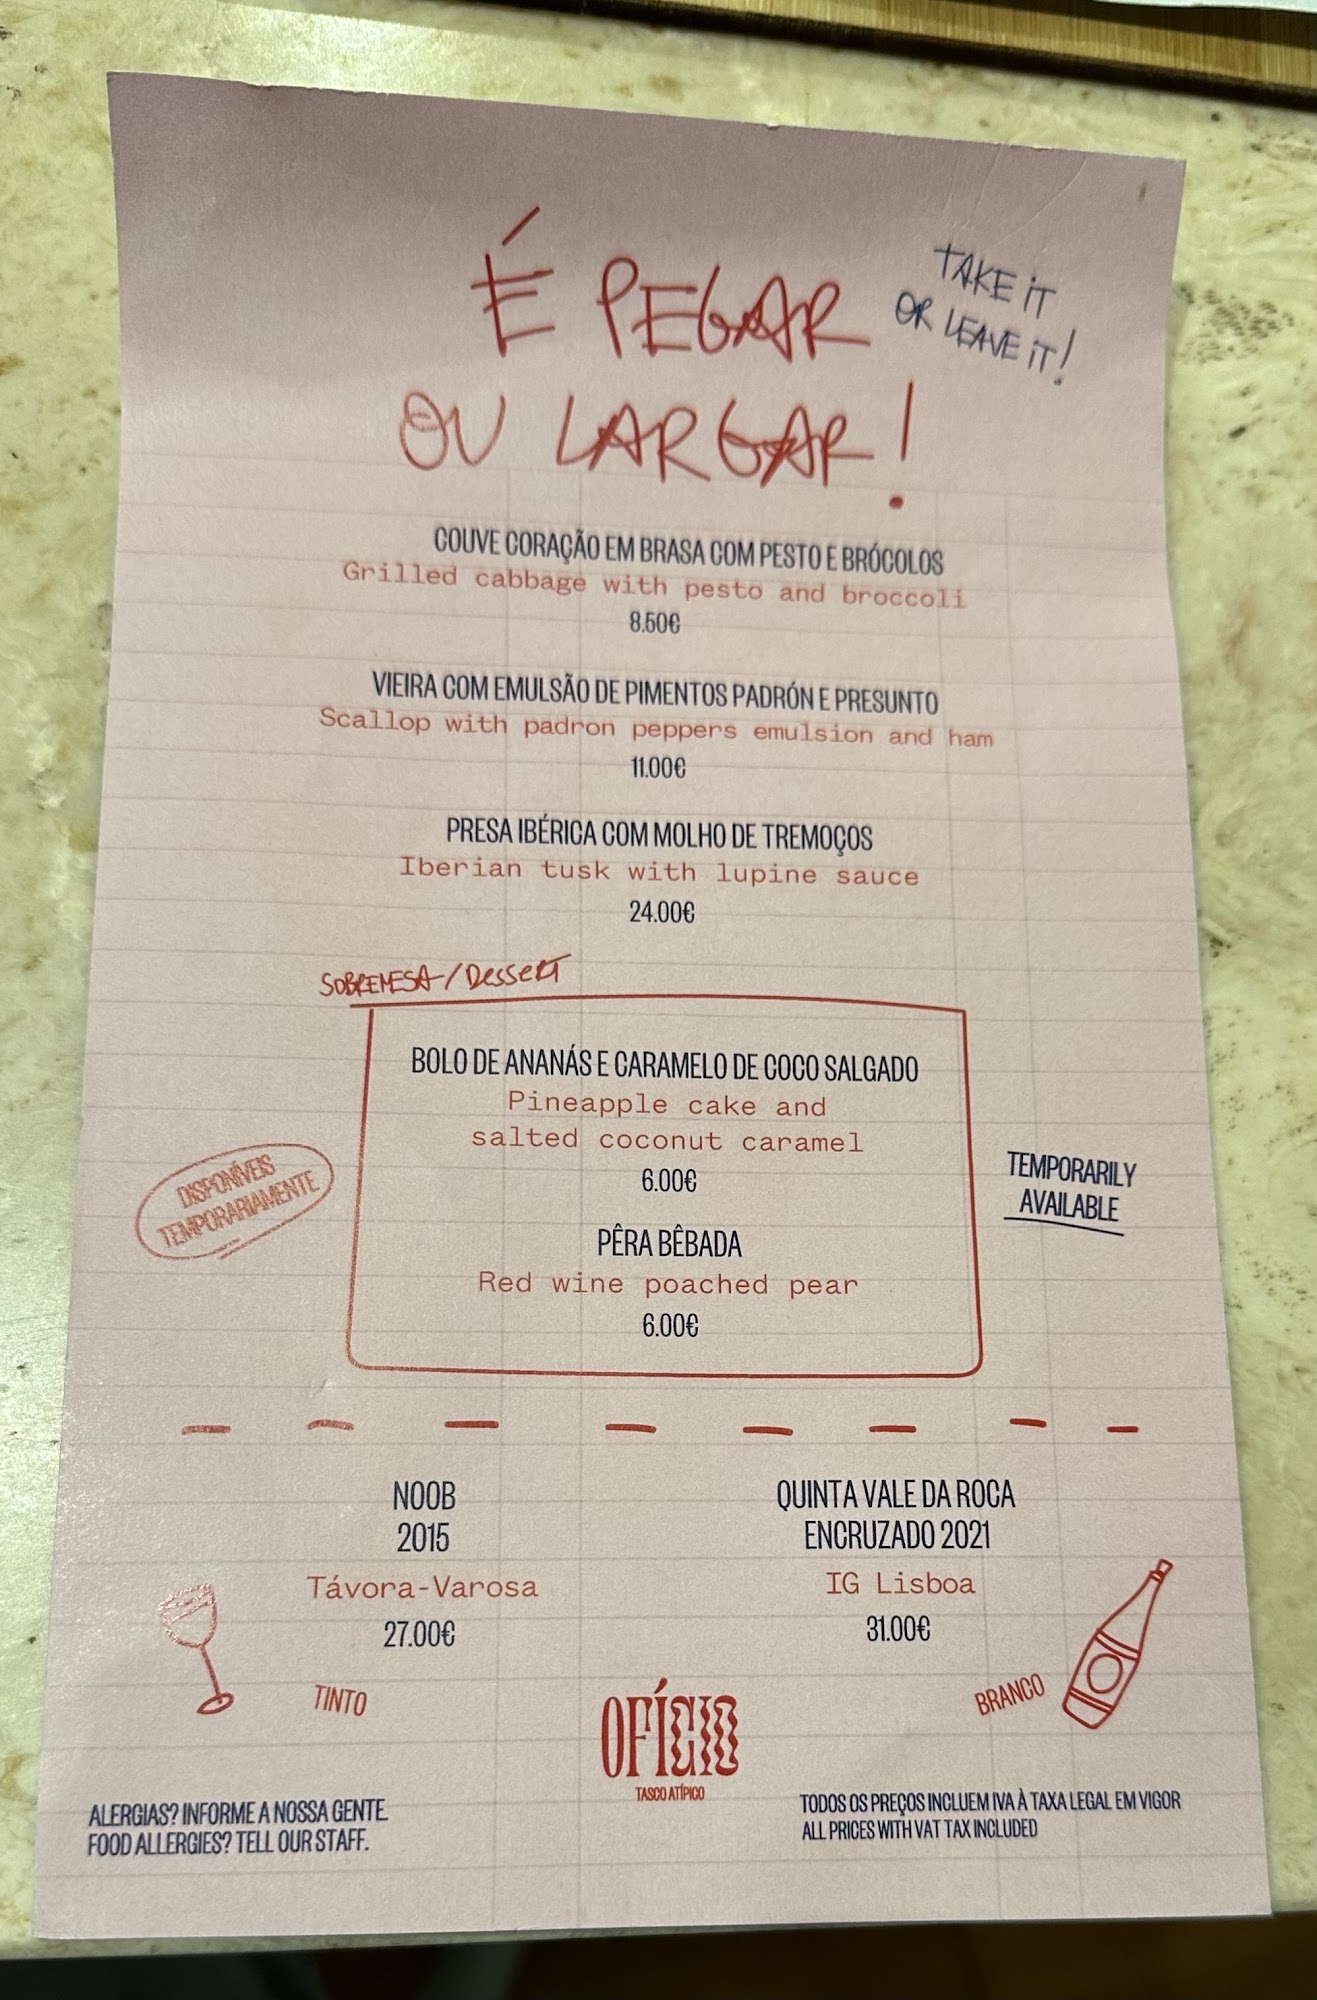 É PEGAR
OU LARGAR!
TAKE IT
OR LEAVE IT!
COUVE CORAÇÃO EM BRASA COM PESTO E BRÓCOLOS
Grilled cabbage with pesto and broccoli
8.50€
VIEIRA COM EMULSÃO DE PIMENTOS PADRÓN E PRESUNTO
Scallop with padron peppers emulsion and ham
11.00€
PRESA IBÉRICA COM MOLHO DE TREMOÇOS
Iberian tusk with lupine sauce
24.00€
SOBREMESA/DESSERT
BOLO DE ANANÁS E CARAMELO DE COCO SALGADO
Pineapple cake and
salted coconut caramel
6.00€
PÊRA BÊBADA
Red wine poached pear
6.00€
DISPONÍVEIS
TEMPORARIAMENTE
TEMPORARILY
AVAILABLE
NOOB
2015
Távora-Varosa
27.00€
TINTO
QUINTA VALE DA ROCA
ENCRUZADO 2021
IG Lisboa
31.00€
BRANCO
OFÍCIO
TASCO ATÍPICO
ALERGIAS? INFORME A NOSSA GENTE.
FOOD ALLERGIES? TELL OUR STAFF.
TODOS OS PREÇOS INCLUEM IVA À TAXA LEGAL EM VIGOR
ALL PRICES WITH VAT TAX INCLUDED